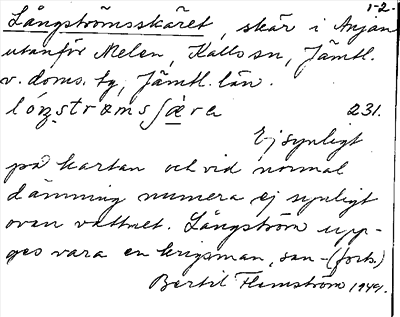 1-2.
Långströmsskäret, skär i Anjan
utanför Melen, Kalls sn, Jämtl.
v. doms. tg, Jämtl. län.
lóŋstrømsʃæ̀ra 231.
Ej synligt
på kartan och vid normal
dämning numera ej synligt
ovan vattnet. Långström upp-
ges vara en krigsman, san- (forts.)
Bertil Flemström 1949.